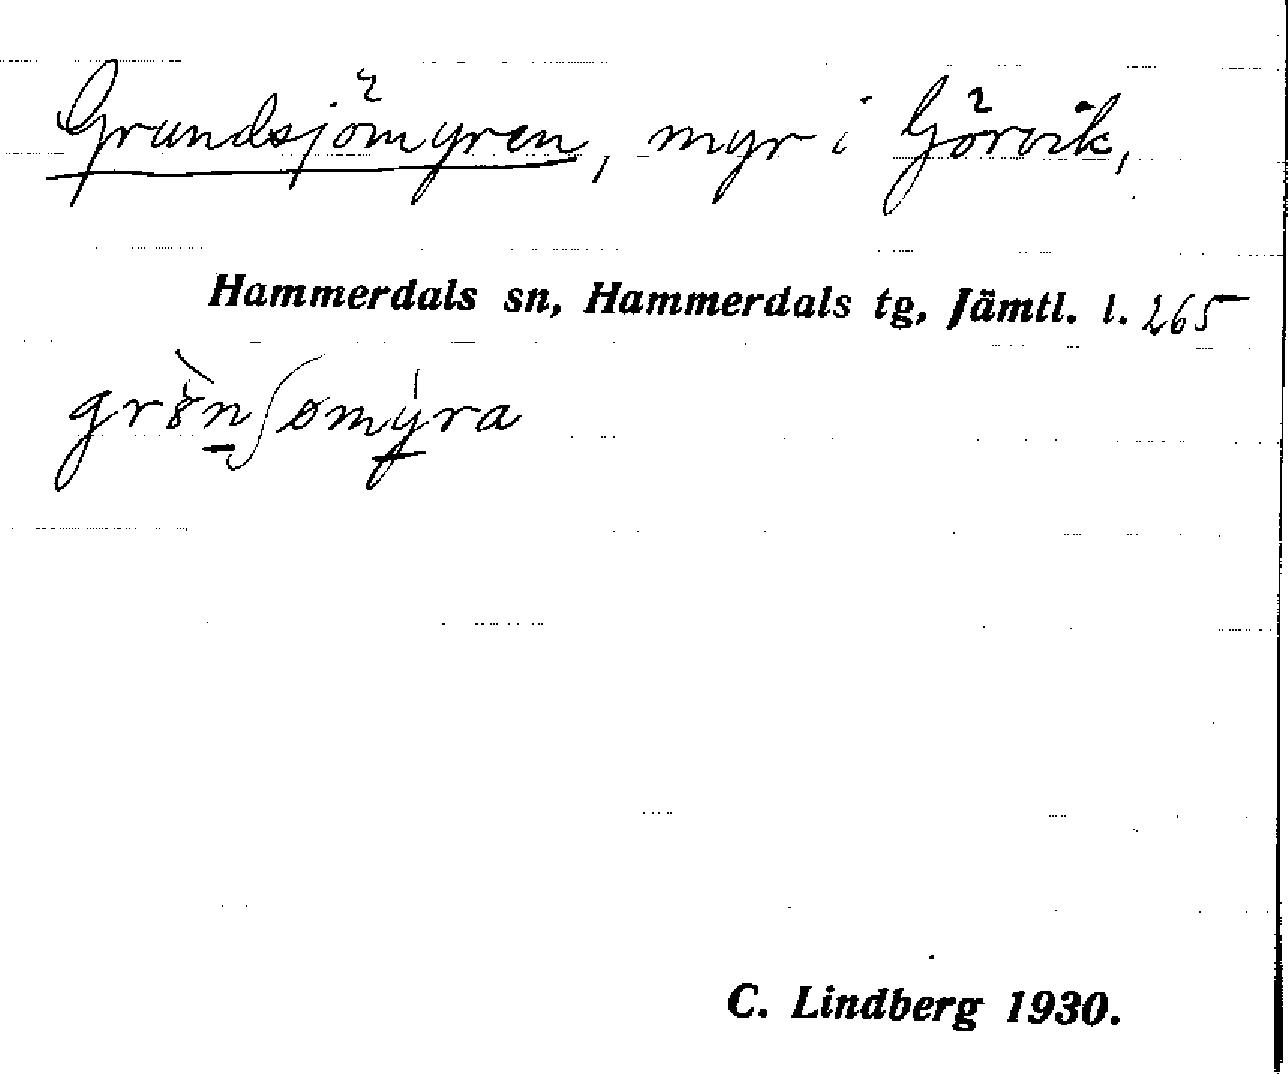 Grundsjömyren, myr i Görvik,
Hammerdals sn, Hammerdals tg, Jämtl. l. 265
C. Lindberg 1930.